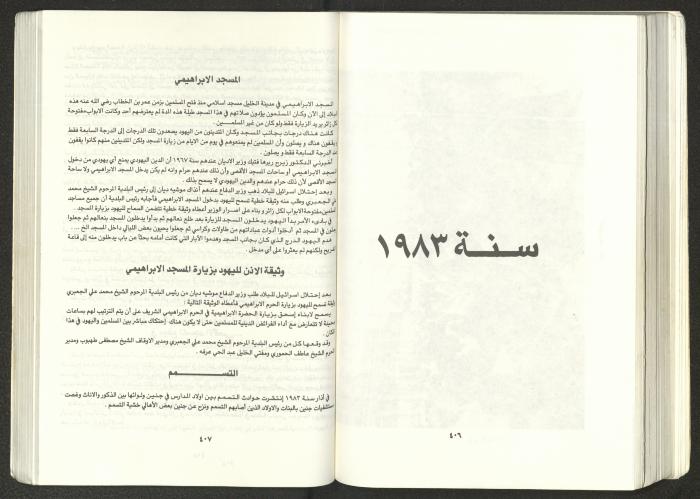 سنة ١٩٨٣
٤٠٦
المسجد الابراهيمي
المسجد الابراهيمي في مدينة الخليل مسجد اسلامي منذ فتح المسلمين بزمن عمر بن الخطاب رضي الله عنه هذه
البلاد إلى الآن وكان المسلمون يؤدون صلاتهم في هذا المسجد طيلة هذه المدة لم يعترضهم أحد وكانت الابواب مفتوحة
لكل زائر يريد الزيارة فقط ولو كان من غير المسلمين .
كانت هناك درجات بجانب المسجد وكان المتدينون من اليهود يصعدون تلك الدرجات إلى الدرجة السابعة فقط
يقفون هناك و يصلون وأن المسلمين لم يمنعوهم في يوم من الايام من زيارة المسجد ولكن المتدينين منهم كانوا يقفون
عند الدرجة السابعة فقط و يصلون .
أخبرني الدكتور زيرح ربرها فتيك وزير الاديان عندهم سنة ١٩٦٧ أن الدين اليهودي يمنع أي يهودي من دخول
المسجد الابراهيمي أو ساحات المسجد الأقصى وأن ذلك عندهم حرام وانه لم يكن يدخل المسجد الابراهيمي ولا ساحة
المسجد الأقصى لأن ذلك حرام عندهم والدين اليهودي لا يسمح بذلك .
و بعد إحتلال اسرائيل للبلاد ذهب وزير الدفاع عندهم آنذاك موشيه ديان إلى رئيس البلدية المرحوم الشيخ محمد
علي الجعبري وطلب منه وثيقة خطية تسمح لليهود بدخول المسجد الابراهيمي فأجابه رئيس البلدية أن جميع مساجد
المسلمين مفتوحة الابواب لكل زائر و بناء على اصرار الوزير أعطاه وثيقة خطية تتضمن السماح لليهود بزيارة المسجد .
في بادىء الأمر بدأ اليهود يدخلون المسجد للزيارة بعد خلع نعالهم ثم بدأوا يدخلون المسجد بنعالهم ثم جعلوا
يصلون في المسجد ثم أدخلوا أدوات عباداتهم من طاولات وكراسي ثم جعلوا يحيون بعض الليالي داخل المسجد الخ ....
هدم اليهود الدرج الذي كان بجانب المسجد وهدموا الآبار التي كانت أمامه بحثاً عن باب يدخلون منه إلى قاعة
الضريح ولكنهم لم يعثروا على أي مدخل .
وثيقة الاذن لليهود بزيارة المسجد الابراهيمي
بعد إحتلال اسرائيل للبلاد طلب وزير الدفاع موشيه ديان من رئيس البلدية المرحوم الشيخ محمد علي الجعبري
وثيقة تسمح لليهود بزيارة الحرم الابراهيمي فأعطاه الوثيقة التالية :
يسمح لابناء إسحق بزيارة الحضرة الابراهيمية في الحرم الابراهيمي الشريف على أن يتم الترتيب لهم بساعات
معينة لا تتعارض مع أداء الفرائض الدينية للمسلمين حتى لا يكون هناك إحتكاك مباشر بين المسلمين واليهود في هذا
المكان .
وقد وقعها كل من رئيس البلدية المرحوم الشيخ محمد علي الجعبري ومدير الأوقاف الشيخ مصطفى طهبوب ومدير
الحرم الشيخ عاطف الحموري ومفتي الخليل عبد الحي عرفه .
التسمم
في آذار سنة ١٩٨٣ إنتشرت حوادث التسمم بين اولاد المدارس في جنين ولوائها بين الذكور والاناث وغصت
مستشفيات جنين بالبنات والاولاد الذين أصابهم التسمم ونزح عن جنين بعض الأهالي خشية التسمم .
٤٠٧